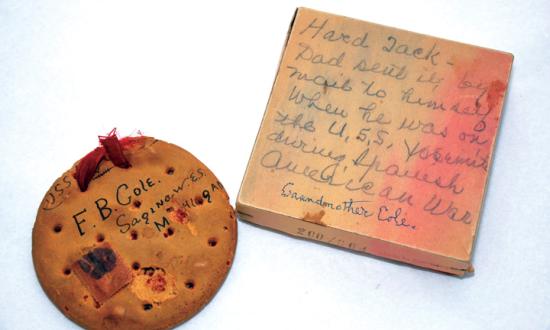 USS
F. B. Cole.
Saginaw. E.S.
MICHIGAN
Hard Tack -
Dad sent it by
mail to himself
When he was on
the U.S.S. Yosemite
during Spanish
American War
Grandmother Cole.